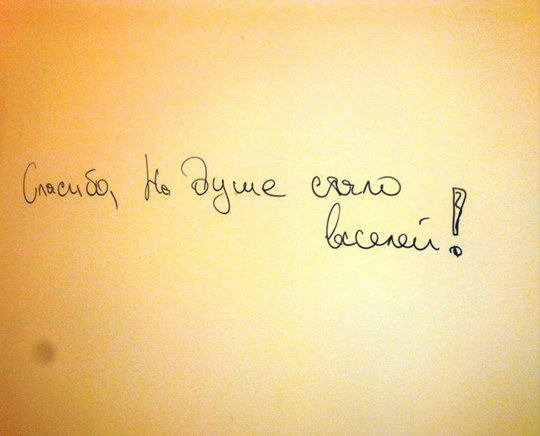 Спасибо, На душе стало
веселей!